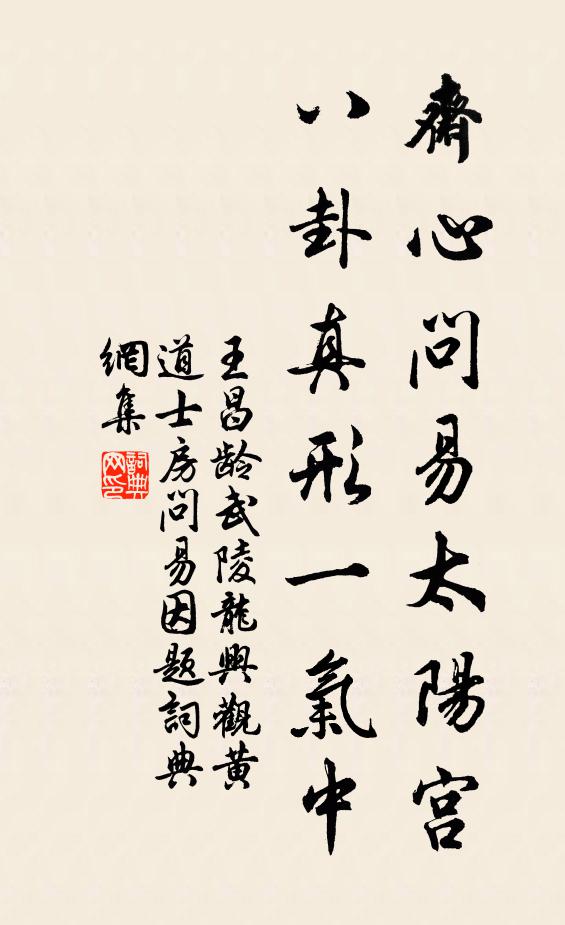 齋心問易太陽宮
八卦真形一氣中
王昌龄武陵龍興觀黄
道士房問易因題詞典
網集
詞典網印